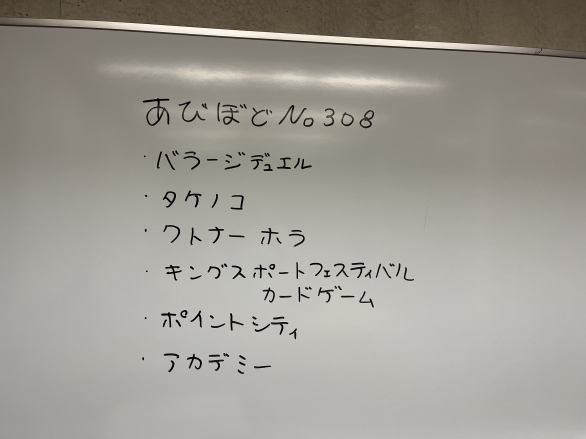 あびぼど No 308
・バラージデュエル
・タケノコ
・クトナー ホラ
・キングスポートフェスティバル
カードゲーム
・ポイントシティ
・アカデミー